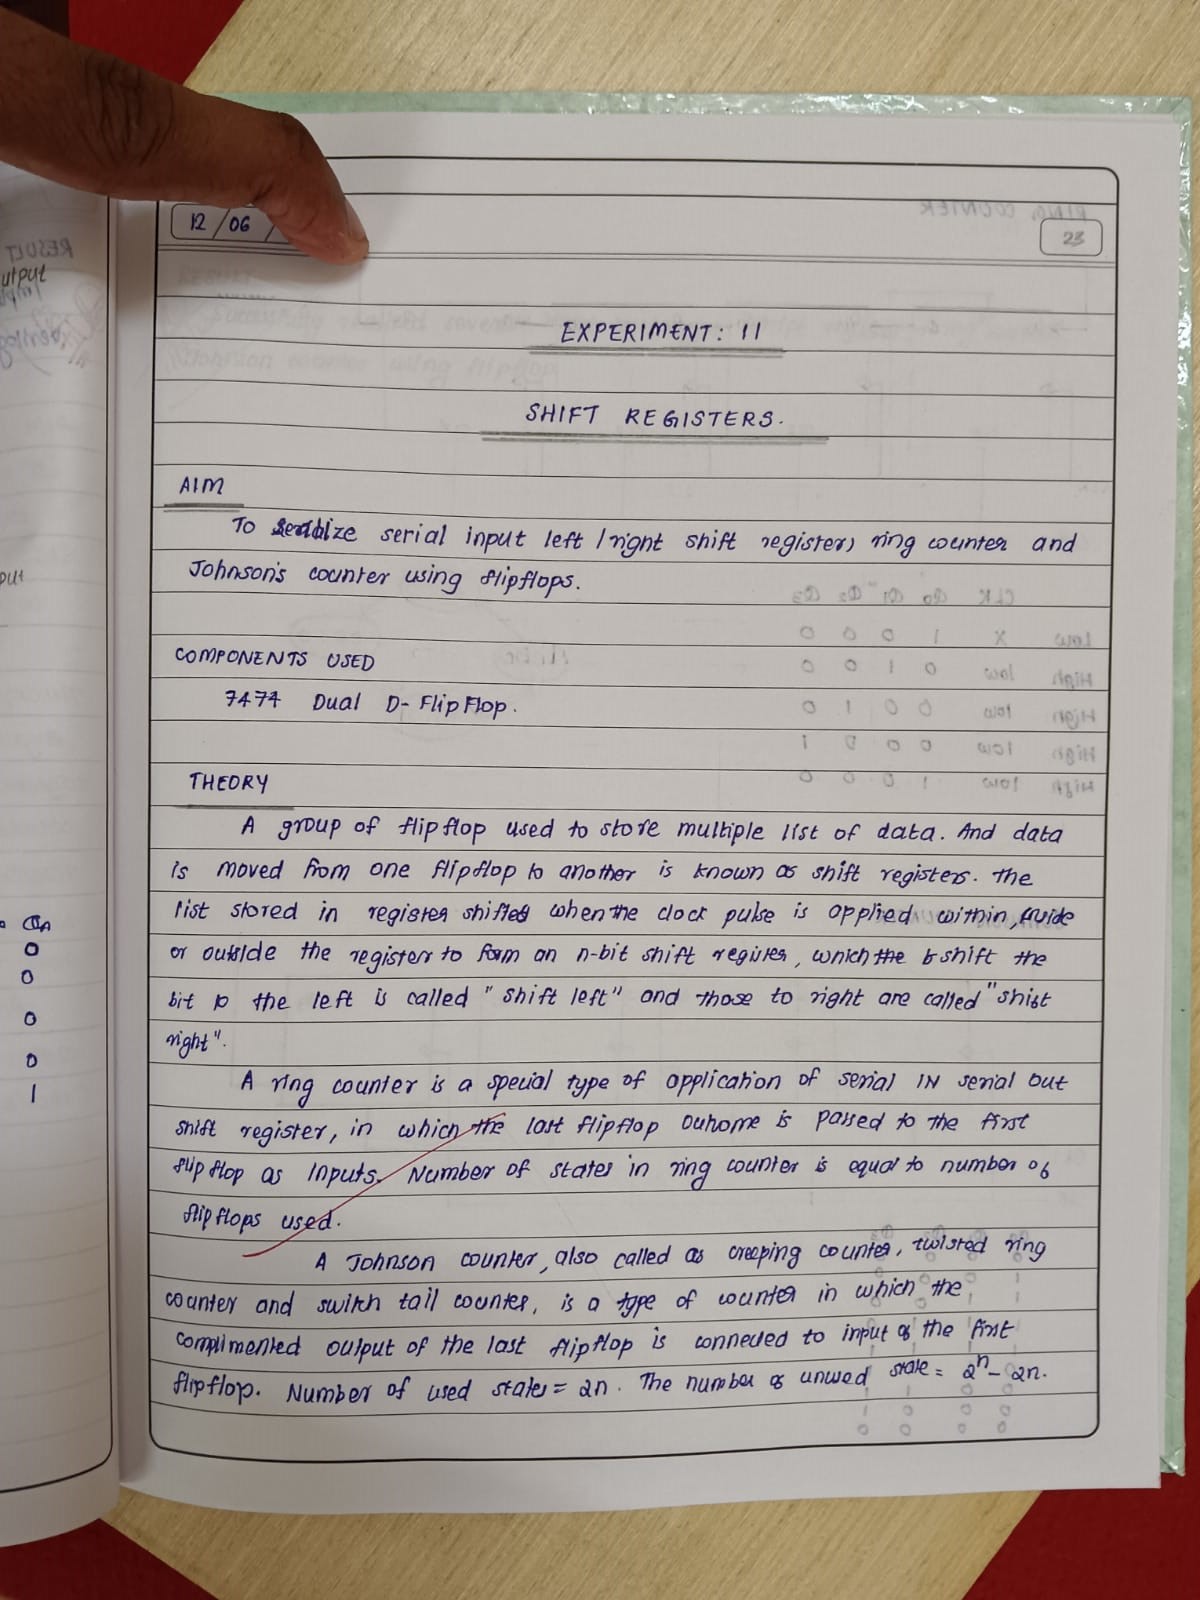 12/06/
23
EXPERIMENT: 11
SHIFT REGISTERS.
AIM
To serialize serial input left/right shift register, ring counter and
Johnson's counter using flipflops.
COMPONENTS USED
7474 Dual D-FlipFlop.
THEORY
A group of flipflop used to store multiple list of data. And data
is moved from one flipflop to another is known as shift registers. The
list stored in register shifted when the clock pulse is applied within,
or outside the register to form an n-bit shift register, which the shift the
bit to the left is called "shift left" and those to right are called "shift
right".
A ring counter is a special type of application of serial IN serial out
shift register, in which the last flipflop outcome is passed to the first
flipflop as inputs. Number of states in ring counter is equal to number of
flipflops used.
A Johnson counter, also called as creeping counter, twisted ring
counter and switch tail counter, is a type of counter in which the
complimented output of the last flipflop is connected to input of the first
flipflop. Number of used states = 2n. The number of unused state = 2^n - 2n.
utput
Qn
0
0
0
0
1